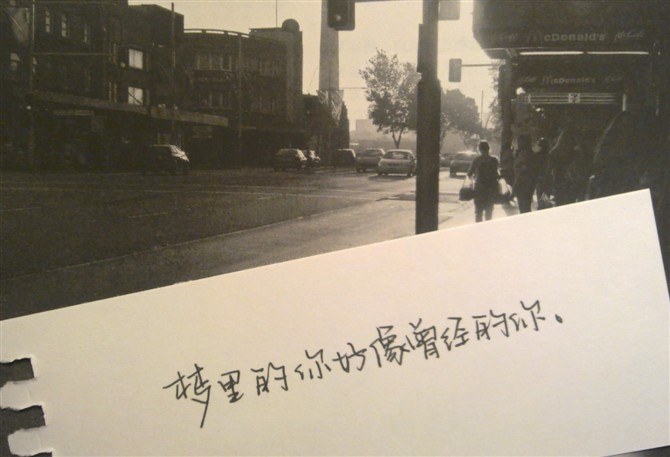 McDonald's
McDonald's
7
梦里的你好像曾经的你。